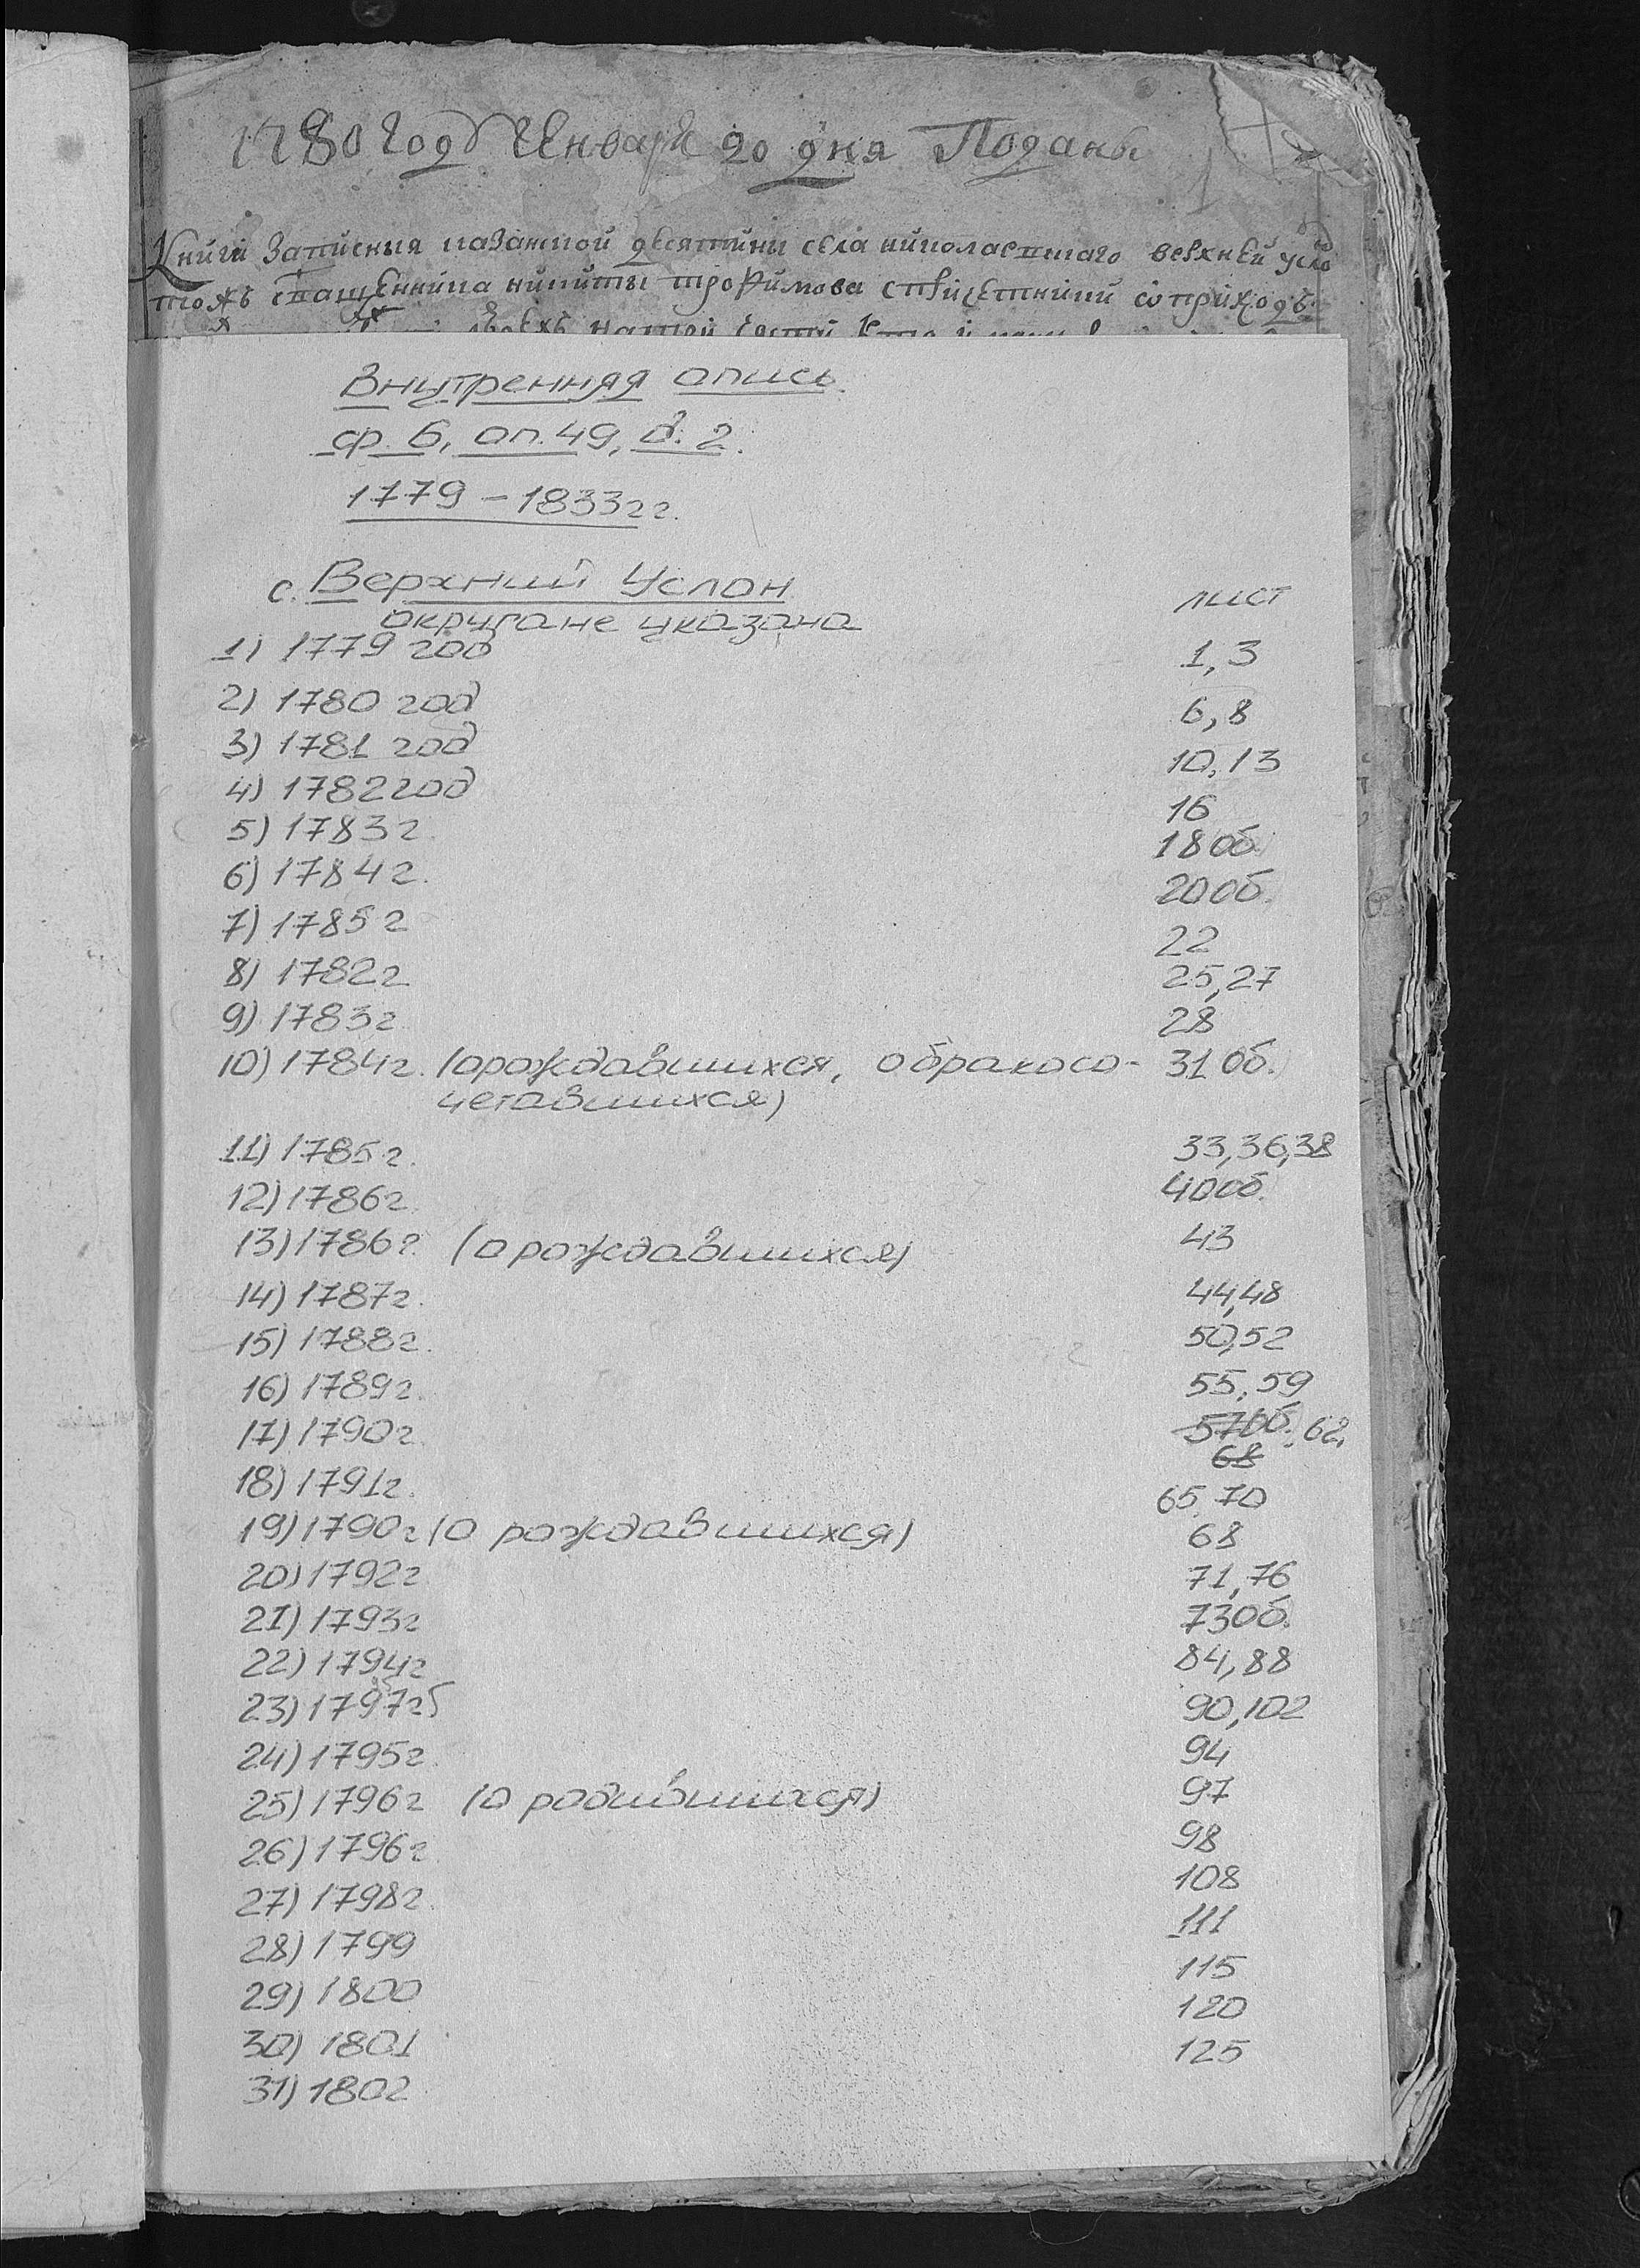 1780 Год Генваря 20 дня Поданы
Книги записныя казанской десятины села никольскаго верхней усло
тожъ священника никиты трофимова спричетники
Внутренняя опись
ф. 6, оп. 49, д. 2.
1779 – 1833 г г.
с. Верхний Услон
лист
округа не указана
1) 1779 год 1, 3
2) 1780 год 6, 8
3) 1781 год 10, 13
4) 1782 год 16
5) 1783 г. 18 об.
6) 1784 г. 20 об.
7) 1785 г 22
8) 1782 г. 25, 27
9) 1783 г 28
10) 1784 г. (о рождавшихся, о бракосо- 31 об.
четавшихся)
11) 1785 г. 33, 36, 38
12) 1786 г. 40 об.
13) 1786 г. (о рождавшихся) 43
14) 1787 г. 44, 48
15) 1788 г. 50, 52
16) 1789 г. 55, 59
17) 1790 г. 57 об., 62,
68
18) 1791 г. 65, 70
19) 1790 г (о рождавшихся) 68
20) 1792 г 71, 76
21) 1793 г 73 об.
22) 1794 г 84, 88
23) 1797 г 90, 102
24) 1795 г. 94
25) 1796 г (о родившихся) 97
26) 1796 г 98
27) 1798 г. 108
28) 1799 111
29) 1800 115
30) 1801 120
31) 1802 125